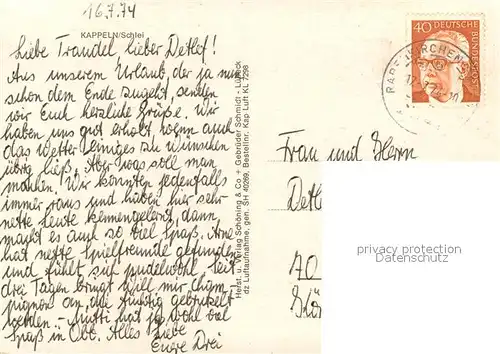 16.7.74
KAPPELN/Schlei
Liebe Traudel, lieber Detlof!
Aus unserem Urlaub, der ja nun
schon dem Ende zugeht, senden
wir Euch herzliche Grüße. Wir
haben uns gut erholt, wenn auch
das Wetter einiges zu wünschen
übrig ließ. Aber was soll man
machen. Wir konnten jedenfalls
immer raus und haben hier sehr
nette Leute kennengelernt, dann
macht es auch so viel Spaß. Arne
hat nette Spielfreunde gefunden
und fühlt sich pudelwohl. Seit
drei Tagen bringt Willi mir Cham
pignon an, die fleißig gebrutzelt
werden. – Mutti hat ja wohl viel
Spaß in Obe. Alles Liebe
Eure Drei
Herst. u. Verlag Schöning & Co + Gebrüder Schmidt - Lübeck
dz Luftaufnahme, gen. SH 40289, Bestellnr. Kap Luft KL 7298
40
DEUTSCHE
BUNDESPOST
RABENKIRCHEN
Frau und Herrn
Detl
privacy protection
AK-Ansichtskarten.de